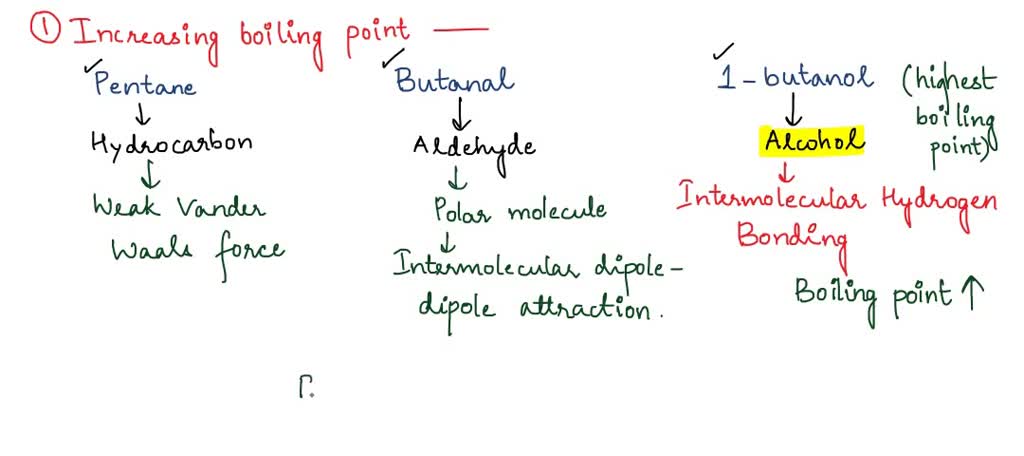 ① Increasing boiling point —
✓Pentane ✓Butanal ✓1-butanol (highest boiling point)
↓ ↓ ↓
Hydrocarbon Aldehyde Alcohol
↓ ↓ ↓
Weak Vander Waals force
Polar molecule
↓
Intermolecular dipole-
dipole attraction.
Intermolecular Hydrogen
Bonding
Boiling point ↑